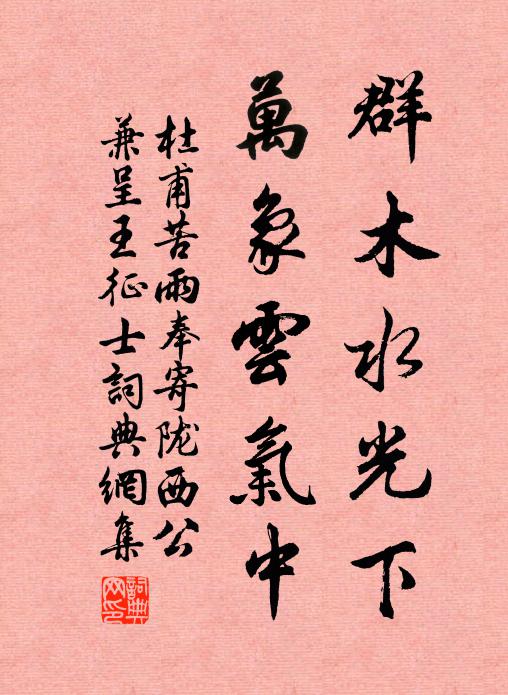 群木水光下
萬象雲氣中
杜甫苦雨奉寄陇西公
兼呈王征士詞典網集
詞典
网印